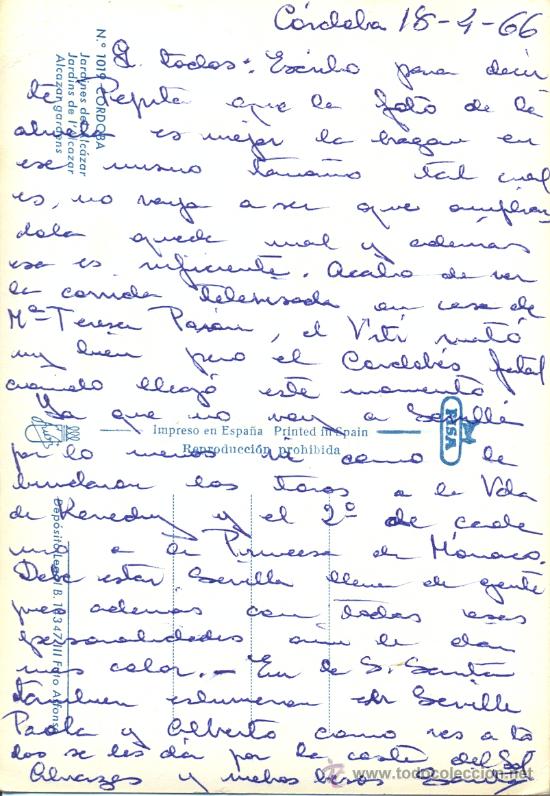 Córdoba 18-4-66
G. todos: Escribo para decir
te Pepita que la foto de la
abuela es mejor la hagan en
ese mismo tamaño tal cual
es, no vaya a ser que amplian
dola quede mal y ademas
esa es suficiente. Acabo de ver
la corrida televisada en casa de
Mª Teresa, el Viti mató
muy bien pero el Cordobés fatal
cuando llegó este momento
Ya que no voy a Sevilla
por lo menos vi como le
brindaron los toros a la Vda
de Kenedy y el 2º de cada
uno a la Princesa de Mónaco.
Debe estar Sevilla llena de gente
pues ademas con todas esas
personalidades aun le dan
mas calor.- En la S. Santa
tambien estuvieron en Sevilla
Paola y Alberto como ves a to
dos se les dá por la costa del Sol
Abrazos y muchos besos
Nº 1019 CORDOBA
Jardines del Alcázar
Jardins de l'Alcazar
Alcazar gardens
Impreso en España Printed in Spain
Reproducción prohibida
FISA
Depósito Legal B. 18347-III Foto
www.todocoleccion.net